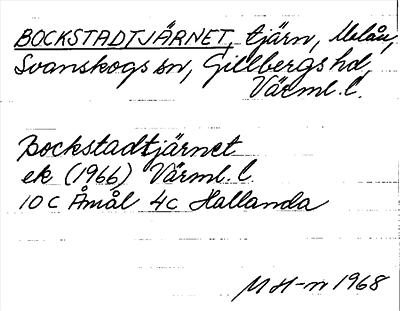 BOCKSTADTJÄRNET, tjärn,
Svanskogs sn, Gillbergs hd,
Värml. l.
Bockstadtjärnet
ek (1966) Värml. l.
10 C Åmål 4c Hallanda
MH-n 1968